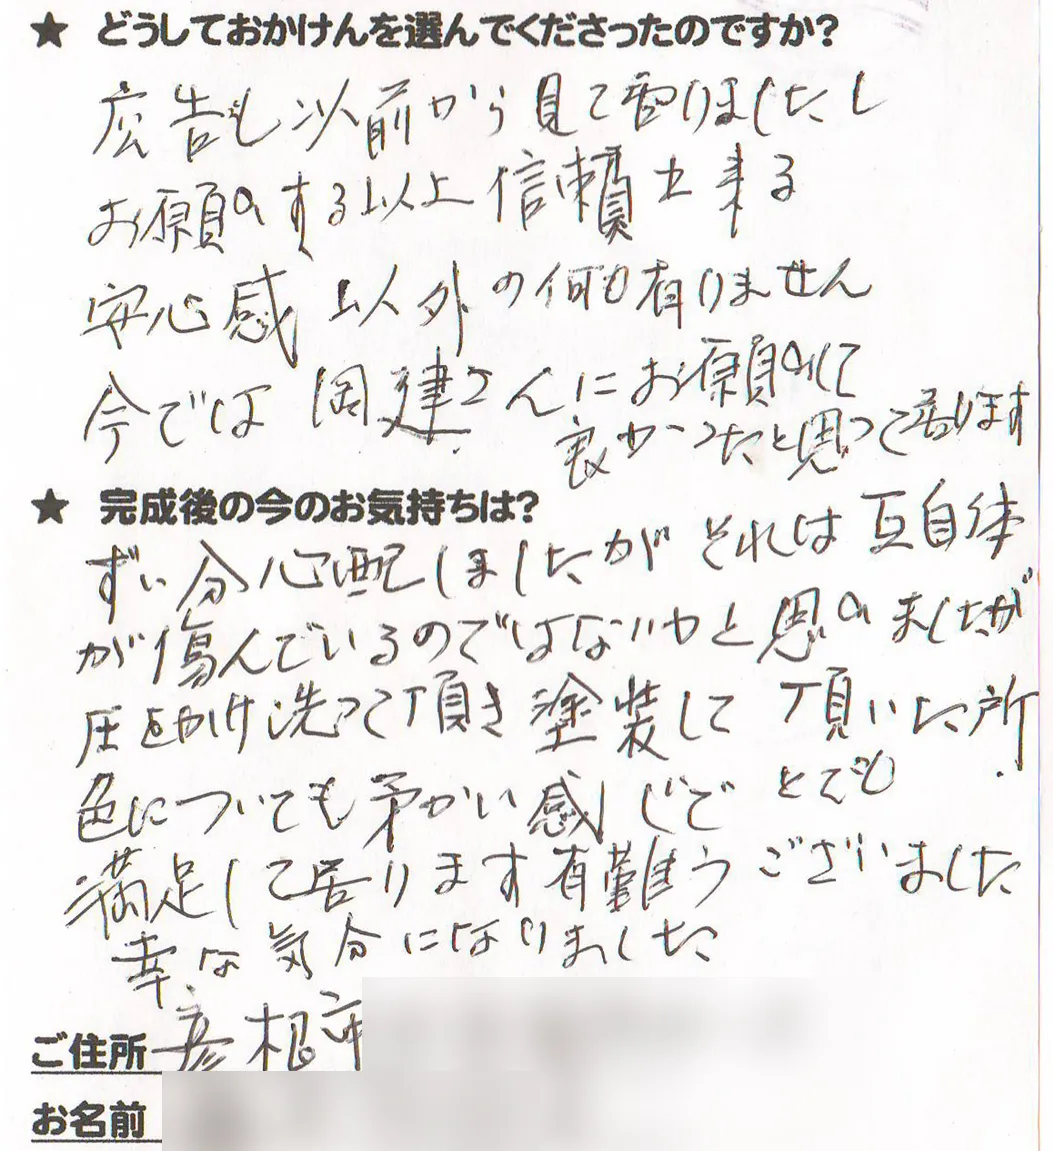 ★ どうしておかけんを選んでくださったのですか?
広告も以前から見て居りましたし
お願いする以上信頼出来る
安心感以外の何も有りません
今では岡建さんにお願いして
良かったと思って居ります
★ 完成後の今のお気持ちは?
ずい分心配しましたがそれは瓦自体
が傷んでいるのではないかと思いましたが
圧をかけ洗って頂き塗装して頂いた所
色についても柔かい感じでとても
満足して居ります有難うございました
幸な気分になりました
ご住所 彦根市
お名前